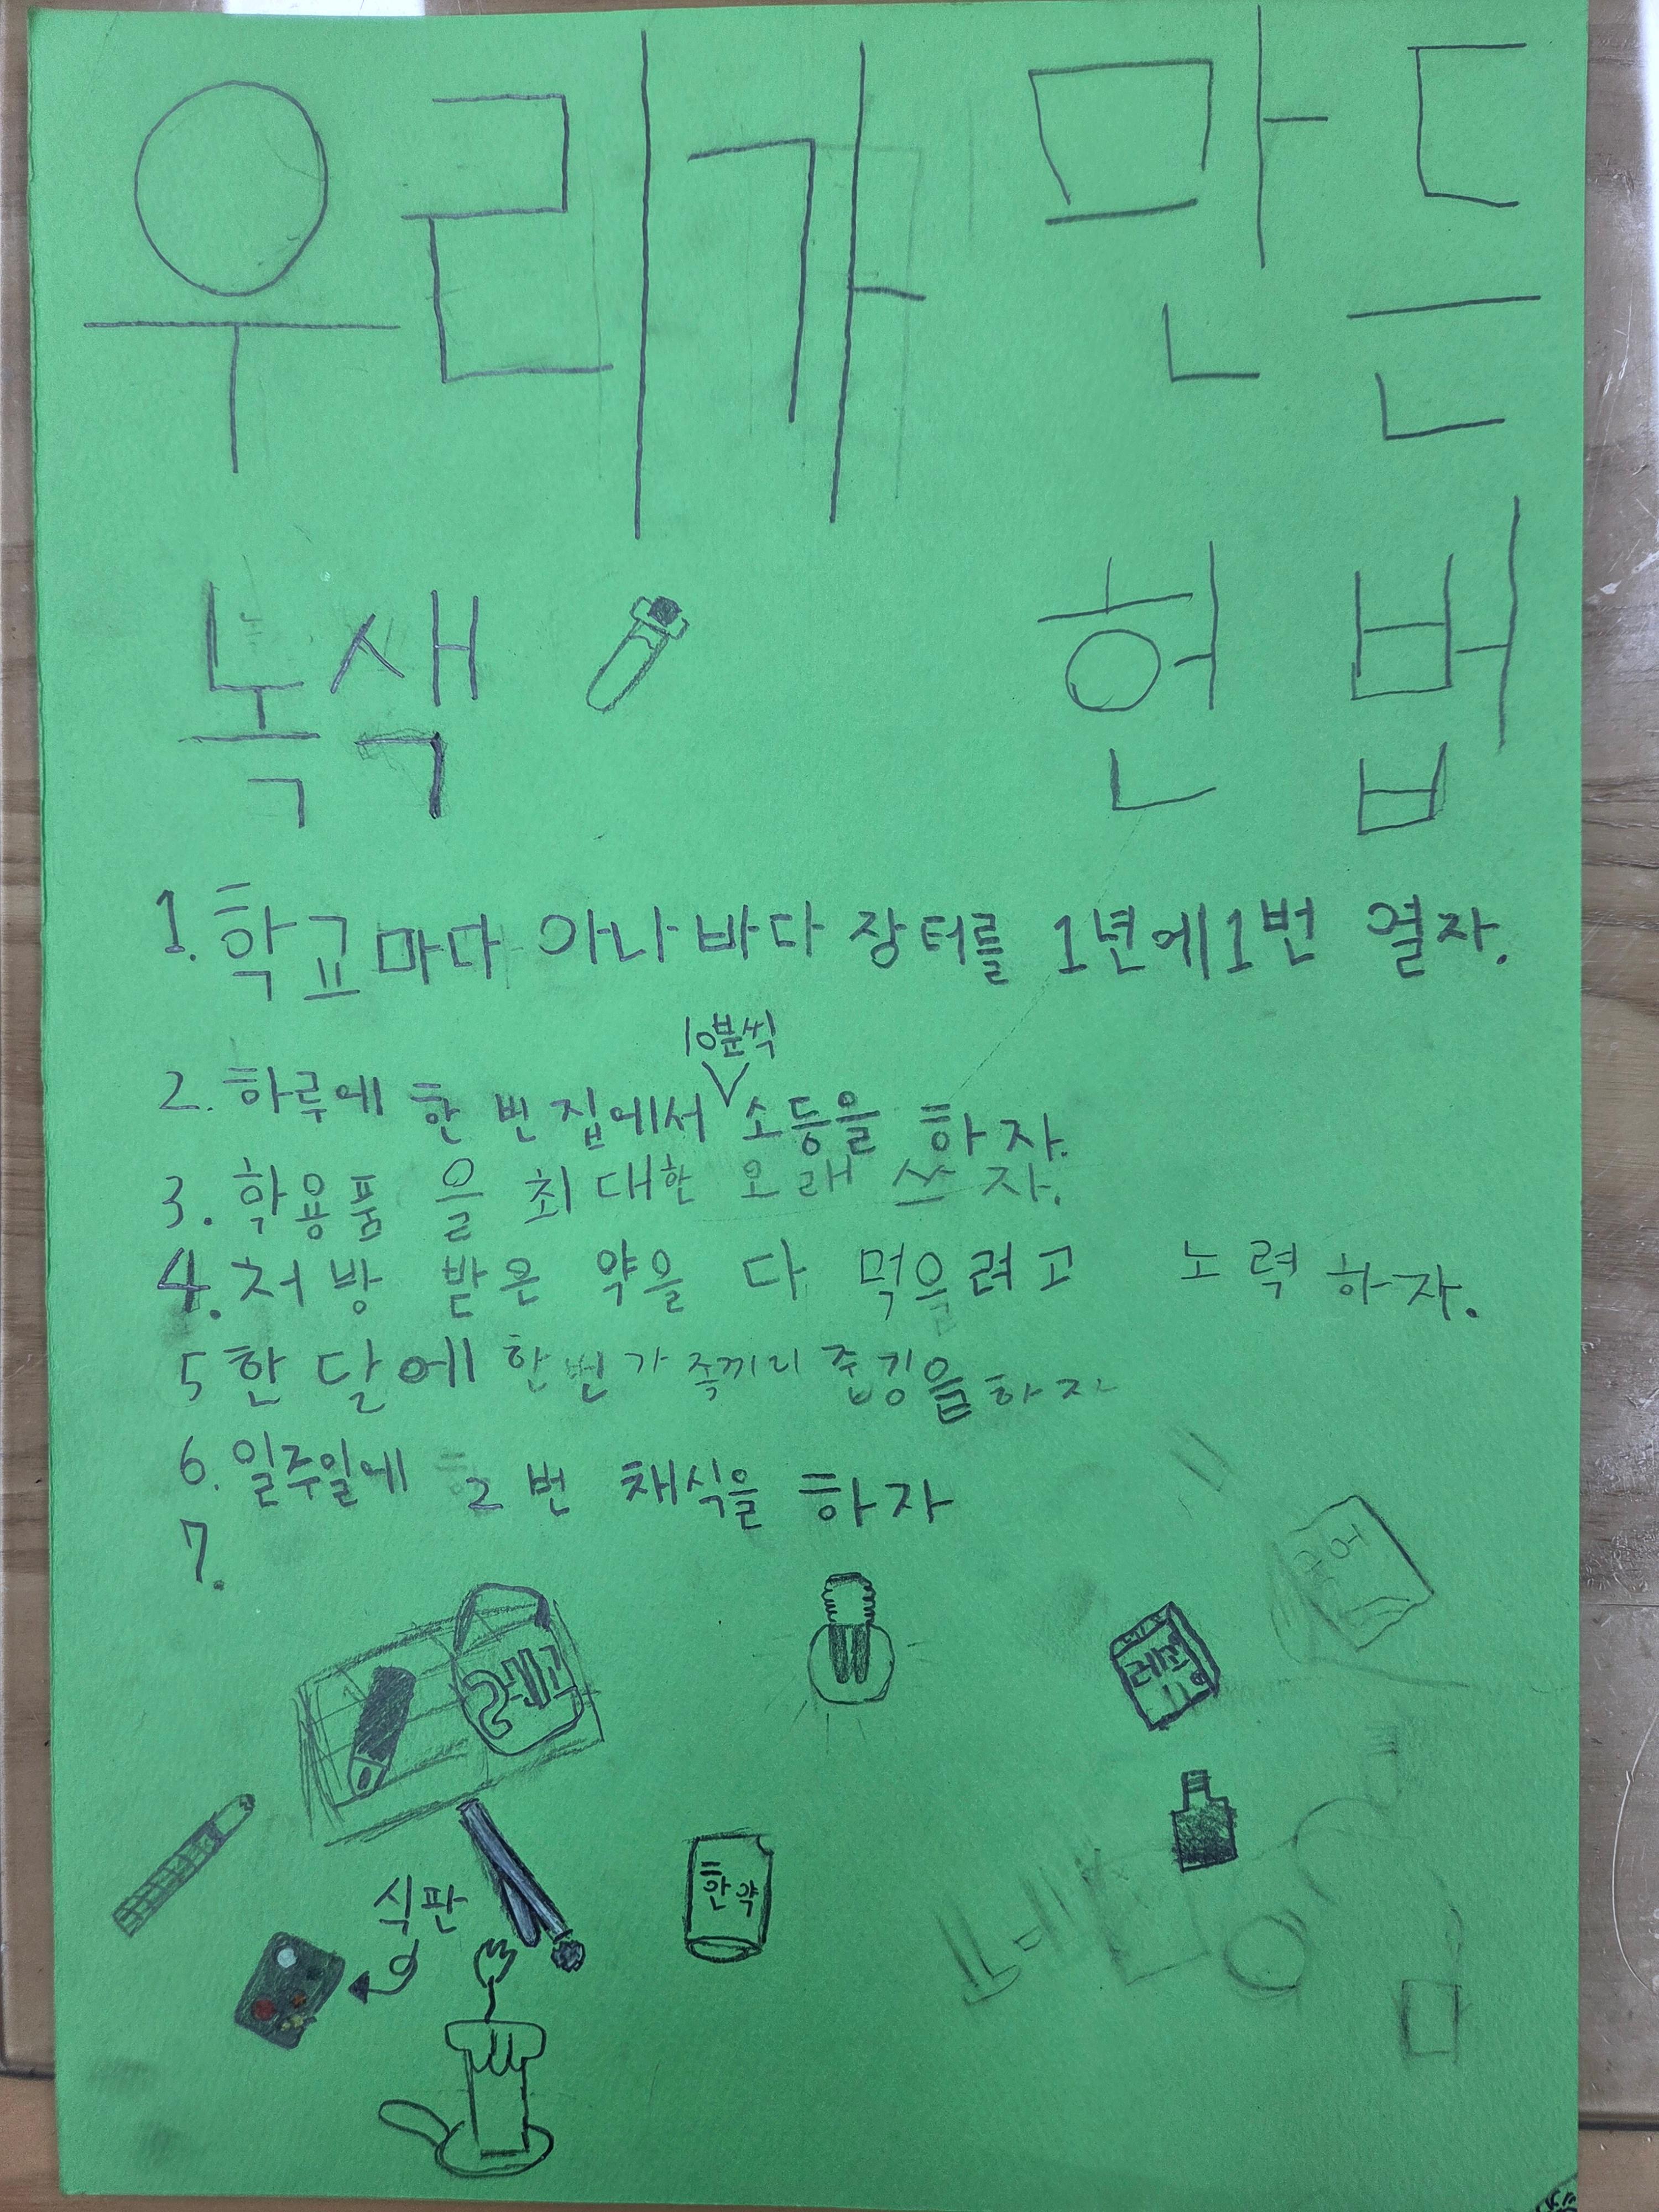 우리가 만든
녹색 헌법
1. 학교마다 아나바다 장터를 1년에 1번 열자.
2. 하루에 한 번 집에서 10분씩 소등을 하자.
3. 학용품을 최대한 오래 쓰자.
4. 처방 받은 약을 다 먹으려고 노력하자.
5 한 달에 한번 가족끼리 줍깅을 하자
6. 일주일에 2번 채식을 하자
7.
한약
식판